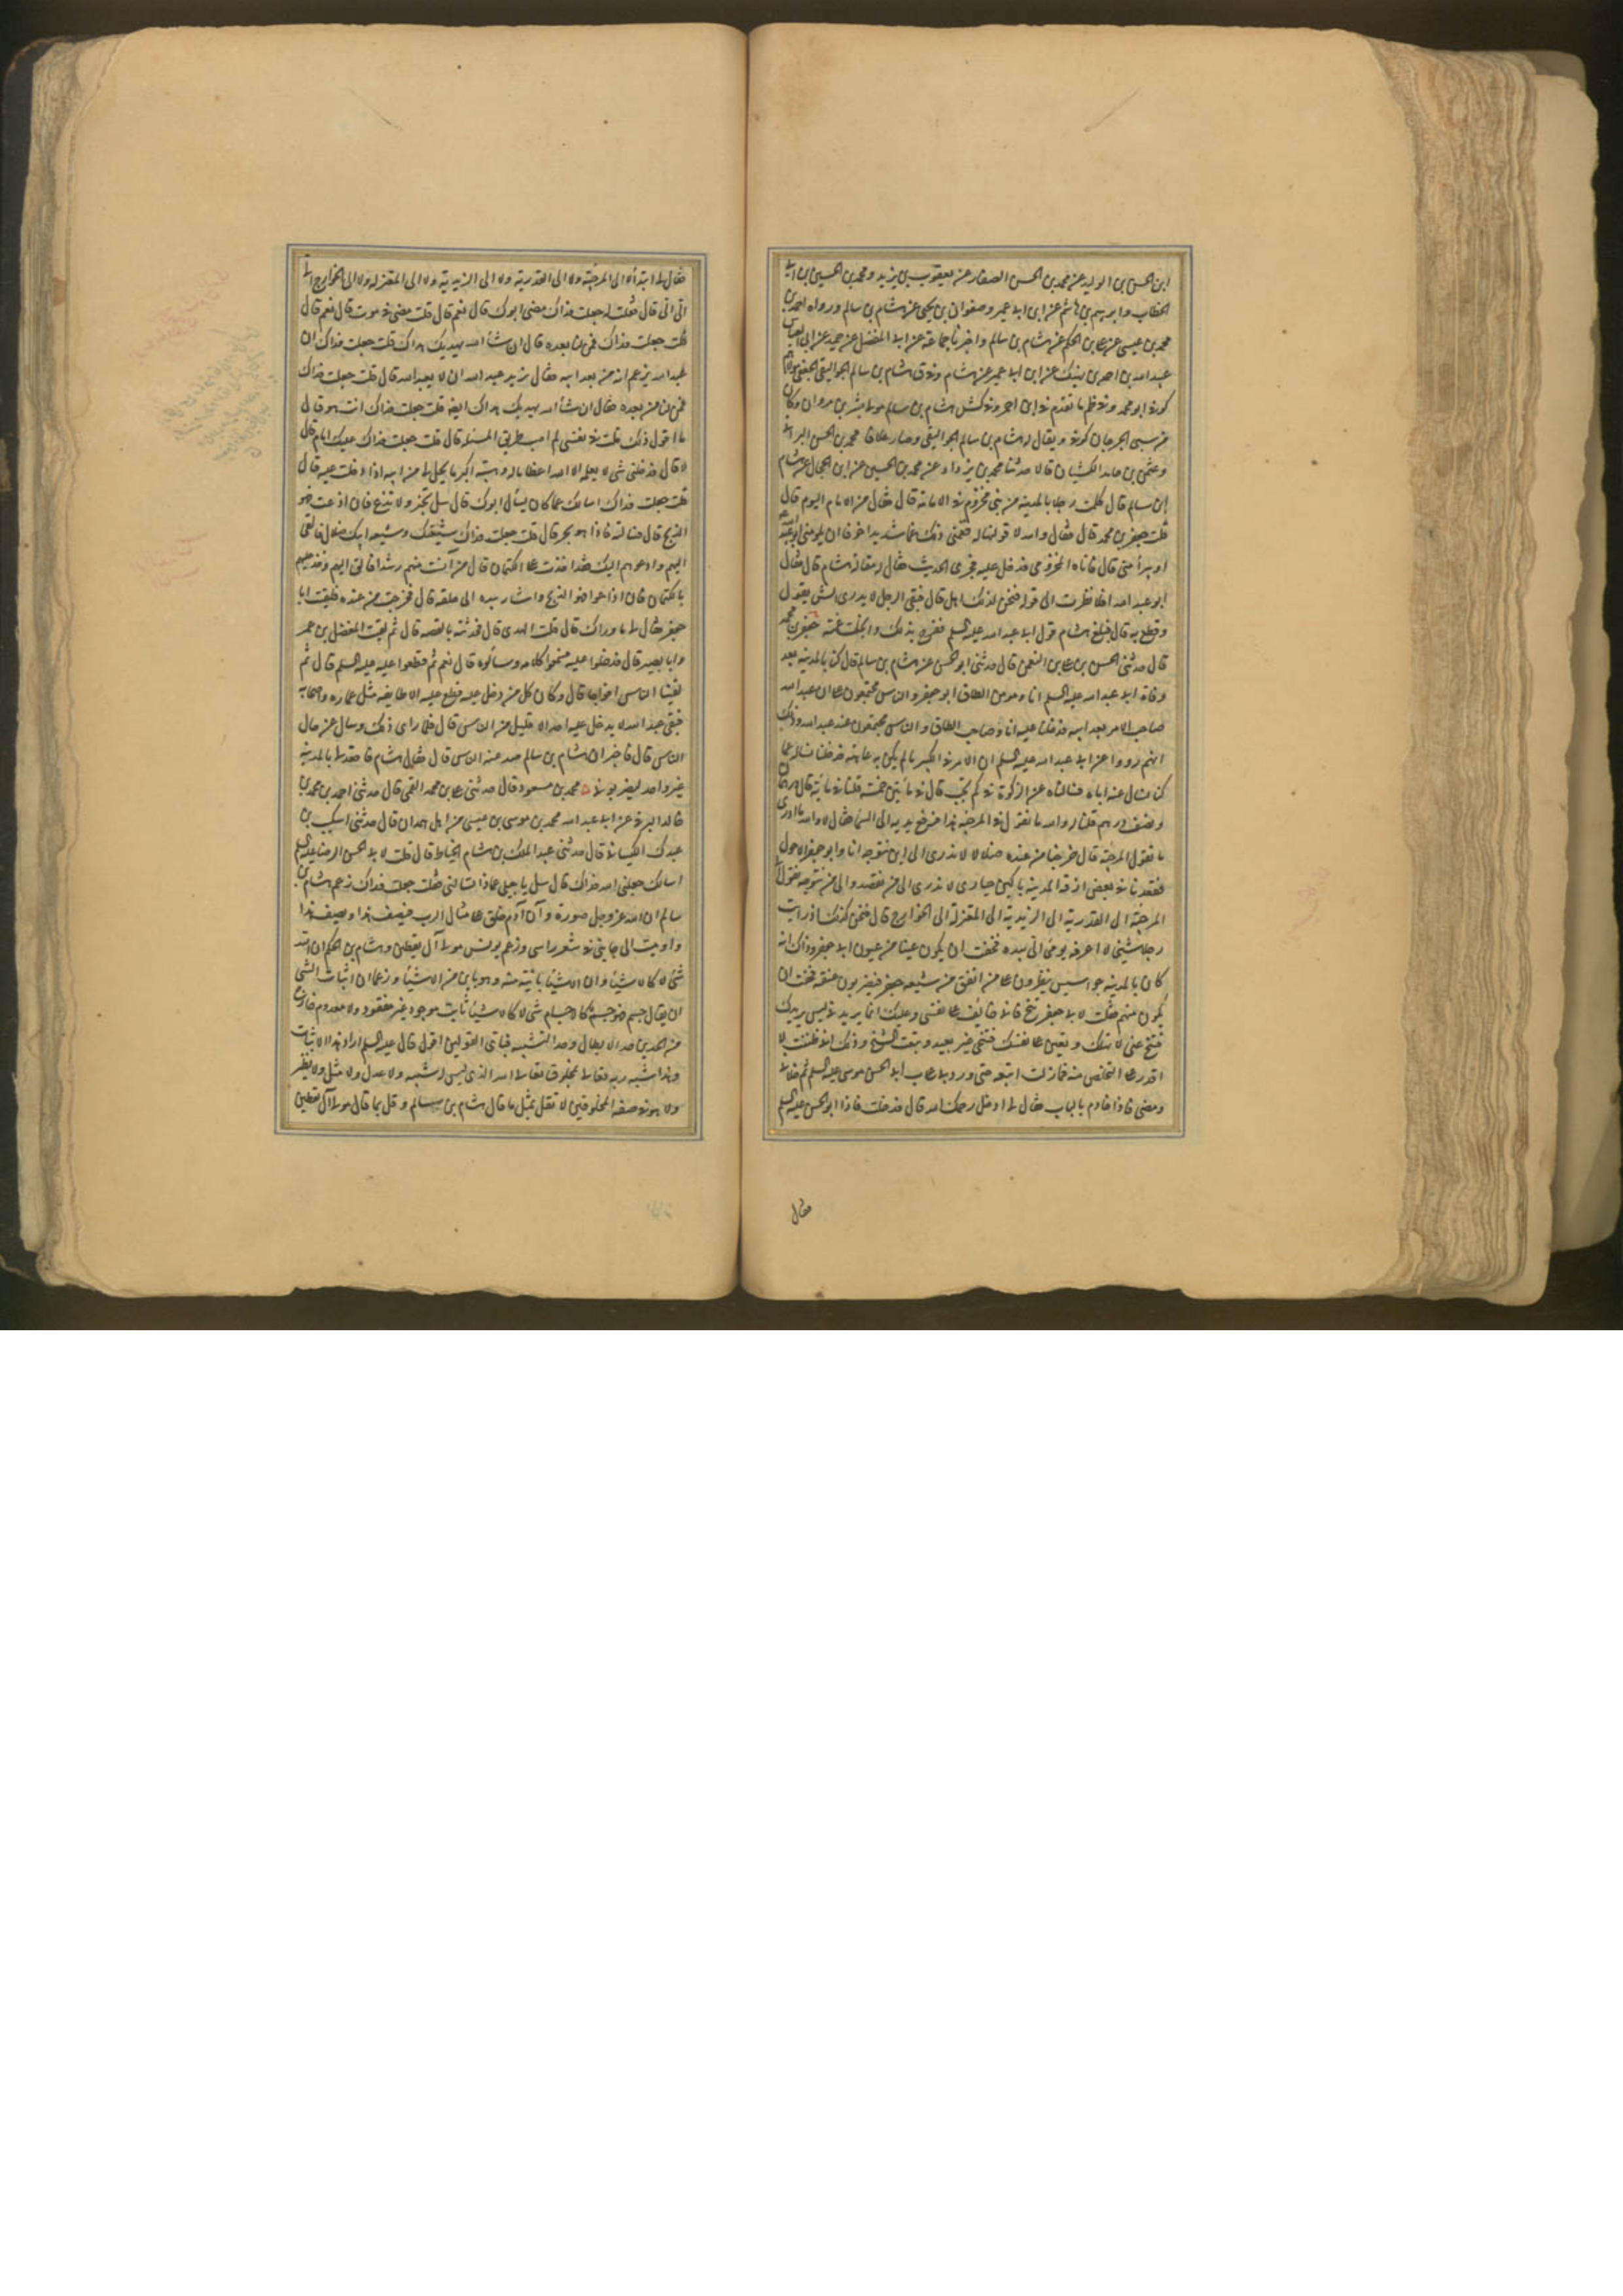 ابن الحسن بن الوليد عن محمد بن الحسن الصفار عن يعقوب بن يزيد ومحمد بن الحسين بن ابي
الخطاب وابرهيم بن هاشم عن ابن ابي عمير وصفوان بن يحيى عن هشام بن سالم ورواه احمد بن
محمد بن عيسى عن علي بن الحكم عن هشام بن سالم واخبرنا جماعة عن ابي المفضل عن حميد عن ابي العباس
عبد الله بن احمد بن نهيك عن ابن ابي عمير عن هشام وفي ق هشام بن سالم الجواليقي الجعفي مولاهم
كوفي ابو محمد وفي ظم ما تقدم في ابن احمر وفي كش هشام بن سالم مولى بشر بن مروان وكان
من سبي الجوزجان كوفي ويقال له هشام بن سالم الجواليقي وصار علافا محمد بن الحسن البراثي
وعثمن بن حامد الكشيان قالا حدثنا محمد بن يزداد عن محمد بن الحسين عن ابن الحجال عن هشام
ابن سالم قال كلمت رجلا بالمدينة من بني مخزوم في الامامة قال فقال من الامام اليوم قال
قلت جعفر بن محمد قال فقال والله لاقولنها له فغمني ذلك غما شديدا خوفا ان يلومني ابو عبد الله
او يبرأ مني قال فاتاه المخزومي فدخل عليه فجرى الحديث فقال له مقالة هشام قال فقال
ابو عبد الله افلا نظرت الى قوله فنحن لذلك اهل قال فبقي الرجل لا يدري ايش يقول
وقطع به قال فبلغ هشام قول ابي عبد الله عليه السلم ففرح بذلك وانجلت غمته جعفر بن محمد
قال حدثني الحسن بن علي بن النعمن قال حدثني ابو الحسن عن هشام بن سالم قال كنا بالمدينة بعد
وفاة ابي عبد الله عليه السلم انا ومؤمن الطاق ابو جعفر والناس مجتمعون على ان عبد الله
صاحب الامر بعد ابيه فدخلنا عليه انا وصاحب الطاق والناس مجتمعون عند عبد الله وذلك
انهم رووا عن ابي عبد الله عليه السلم ان الامر في الكبير ما لم يكن به عاهة فدخلنا نساله عما
كنا نسال عنه اباه فسالناه عن الزكوة في كم تجب قال في مأتين خمسة قلنا ففي مائة قال درهمان
ونصف درهم قلنا له والله ما تقول هذا المرجئة هذا فرفع يديه الى السماء فقال لا والله ما ادري
ما تقول المرجئة قال فخرجنا من عنده ضلالا لا ندري الى اين نتوجه انا وابو جعفر الاحول
فقعدنا في بعض ازقة المدينة باكين حيارى لا ندري الى من نقصد والى من نتوجه نقول
المرجئة الى القدرية الى الزيدية الى المعتزلة الى الخوارج قال فنحن كذلك اذ رايت
رجلا شيخا لا اعرفه يومئ الي بيده فخفت ان يكون عينا من عيون ابي جعفر وذاك انه
كان بالمدينة جواسيس ينظرون على من اتفق من شيعة جعفر فيضربون عنقه فخفت ان
يكون منهم فقلت لابي جعفر تنح فاني خائف على نفسي وعليك انما يريدني ليس يريدك
فتنح عني لا تهلك وتعين على نفسك فتنحى غير بعيد وتبعت الشيخ وذلك اني ظننت اني لا
اقدر على التخلص منه فما زلت اتبعه حتى ورد بي على باب ابي الحسن موسى عليه السلم ثم خلاني
ومضى فاذا خادم بالباب فقال لي ادخل رحمك الله قال فدخلت فاذا ابو الحسن عليه السلم
فقال
فقال لي ابتداء لا الى المرجئة ولا الى القدرية ولا الى الزيدية ولا الى المعتزلة ولا الى الخوارج الي
الي الي قال فقلت له جعلت فداك مضى ابوك قال نعم قال قلت مضى في موت قال نعم قال
قلت جعلت فداك فمن لنا بعده قال ان شاء الله يهديك هداك قلت جعلت فداك ان
عبد الله يزعم انه من بعد ابيه فقال يزيد عبد الله ان لا يعبد الله قال قلت جعلت فداك
فمن لنا من بعده فقال ان شاء الله يهديك هداك ايضا قلت جعلت فداك انت هو قال
ما اقول ذلك قلت في نفسي لم اصب طريق المسئلة قال قلت جعلت فداك عليك امام قال
لا قال فدخلني شيء لا يعلمه الا الله اعظاما له وهيبة اكبر ما يحل بي من ابيه اذا دخلت عليه قال
قلت جعلت فداك اسالك عما كان يسأل ابوك قال سل تخبر ولا تذع فان اذعت فهو
الذبح قال فسالته فاذا هو بحر قال قلت جعلت فداك شيعتك وشيعة ابيك ضلال فالقى
اليهم وادعوهم اليك فقد اخذت علي الكتمان قال من آنست منهم رشدا فالق اليهم وخذ عليهم
بالكتمان فان اذاعوا فهو الذبح واشار بيده الى حلقه قال فخرجت من عنده فلقيت ابا
جعفر فقال لي ما وراك قال قلت الهدى قال فحدثته بالقصة قال ثم لقيت المفضل بن عمر
وابا بصير قال فدخلوا عليه فسمعوا كلامه وسالوه قال نعم ثم قطعوا عليه عليه السلم قال ثم
لقينا الناس افواجا قال وكان كل من دخل عليه قطع عليه الا طايفة مثل عمار واصحابه
فبقي عبد الله لا يدخل عليه احد الا قليل من الناس قال فلما راى ذلك وسال عن حال
الناس قال فاخبر ان هشام بن سالم صد عنه الناس قال فقال هشام فاقعد لي بالمدينة
غير واحد ليضربوني محمد بن مسعود قال حدثني علي بن محمد القمي قال حدثني احمد بن محمد بن
خالد البرقي عن ابي عبد الله محمد بن موسى بن عيسى من اهل همدان قال حدثني اشكيب بن
عبدك الكيساني قال حدثني عبد الملك بن هشام الخياط قال قلت لابي الحسن الرضا عليه السلم
اسالك جعلني الله فداك قال سل يا جبلي عماذا تسالني فقلت جعلت فداك زعم هشام بن
سالم ان الله عز وجل صورة وان آدم خلق على مثال الرب فيصف هذا ويصف هذا
واوميت الى جانبي وشعر راسي وزعم يونس مولى آل يقطين وهشام بن الحكم ان الله
شيء لا كالاشياء وان الاشياء بائنة منه وهو باين من الاشياء وزعما ان اثبات الشي
ان يقال جسم فهو جسم لا كالاجسام شيء لا كالاشياء ثابت موجود غير مفقود ولا معدوم خارج
من الحدين حد الابطال وحد التشبيه فباي القولين اقول قال عليه السلم اراد هذا الاثبات
وهذا شبه ربه تعالى بمخلوق تعالى الله الذي ليس له شبه ولا عدل ولا مثل ولا نظير
ولا هو في صفة المخلوقين لا تقل بمثل ما قال هشام بن سالم وقل بما قال مولى آل يقطين